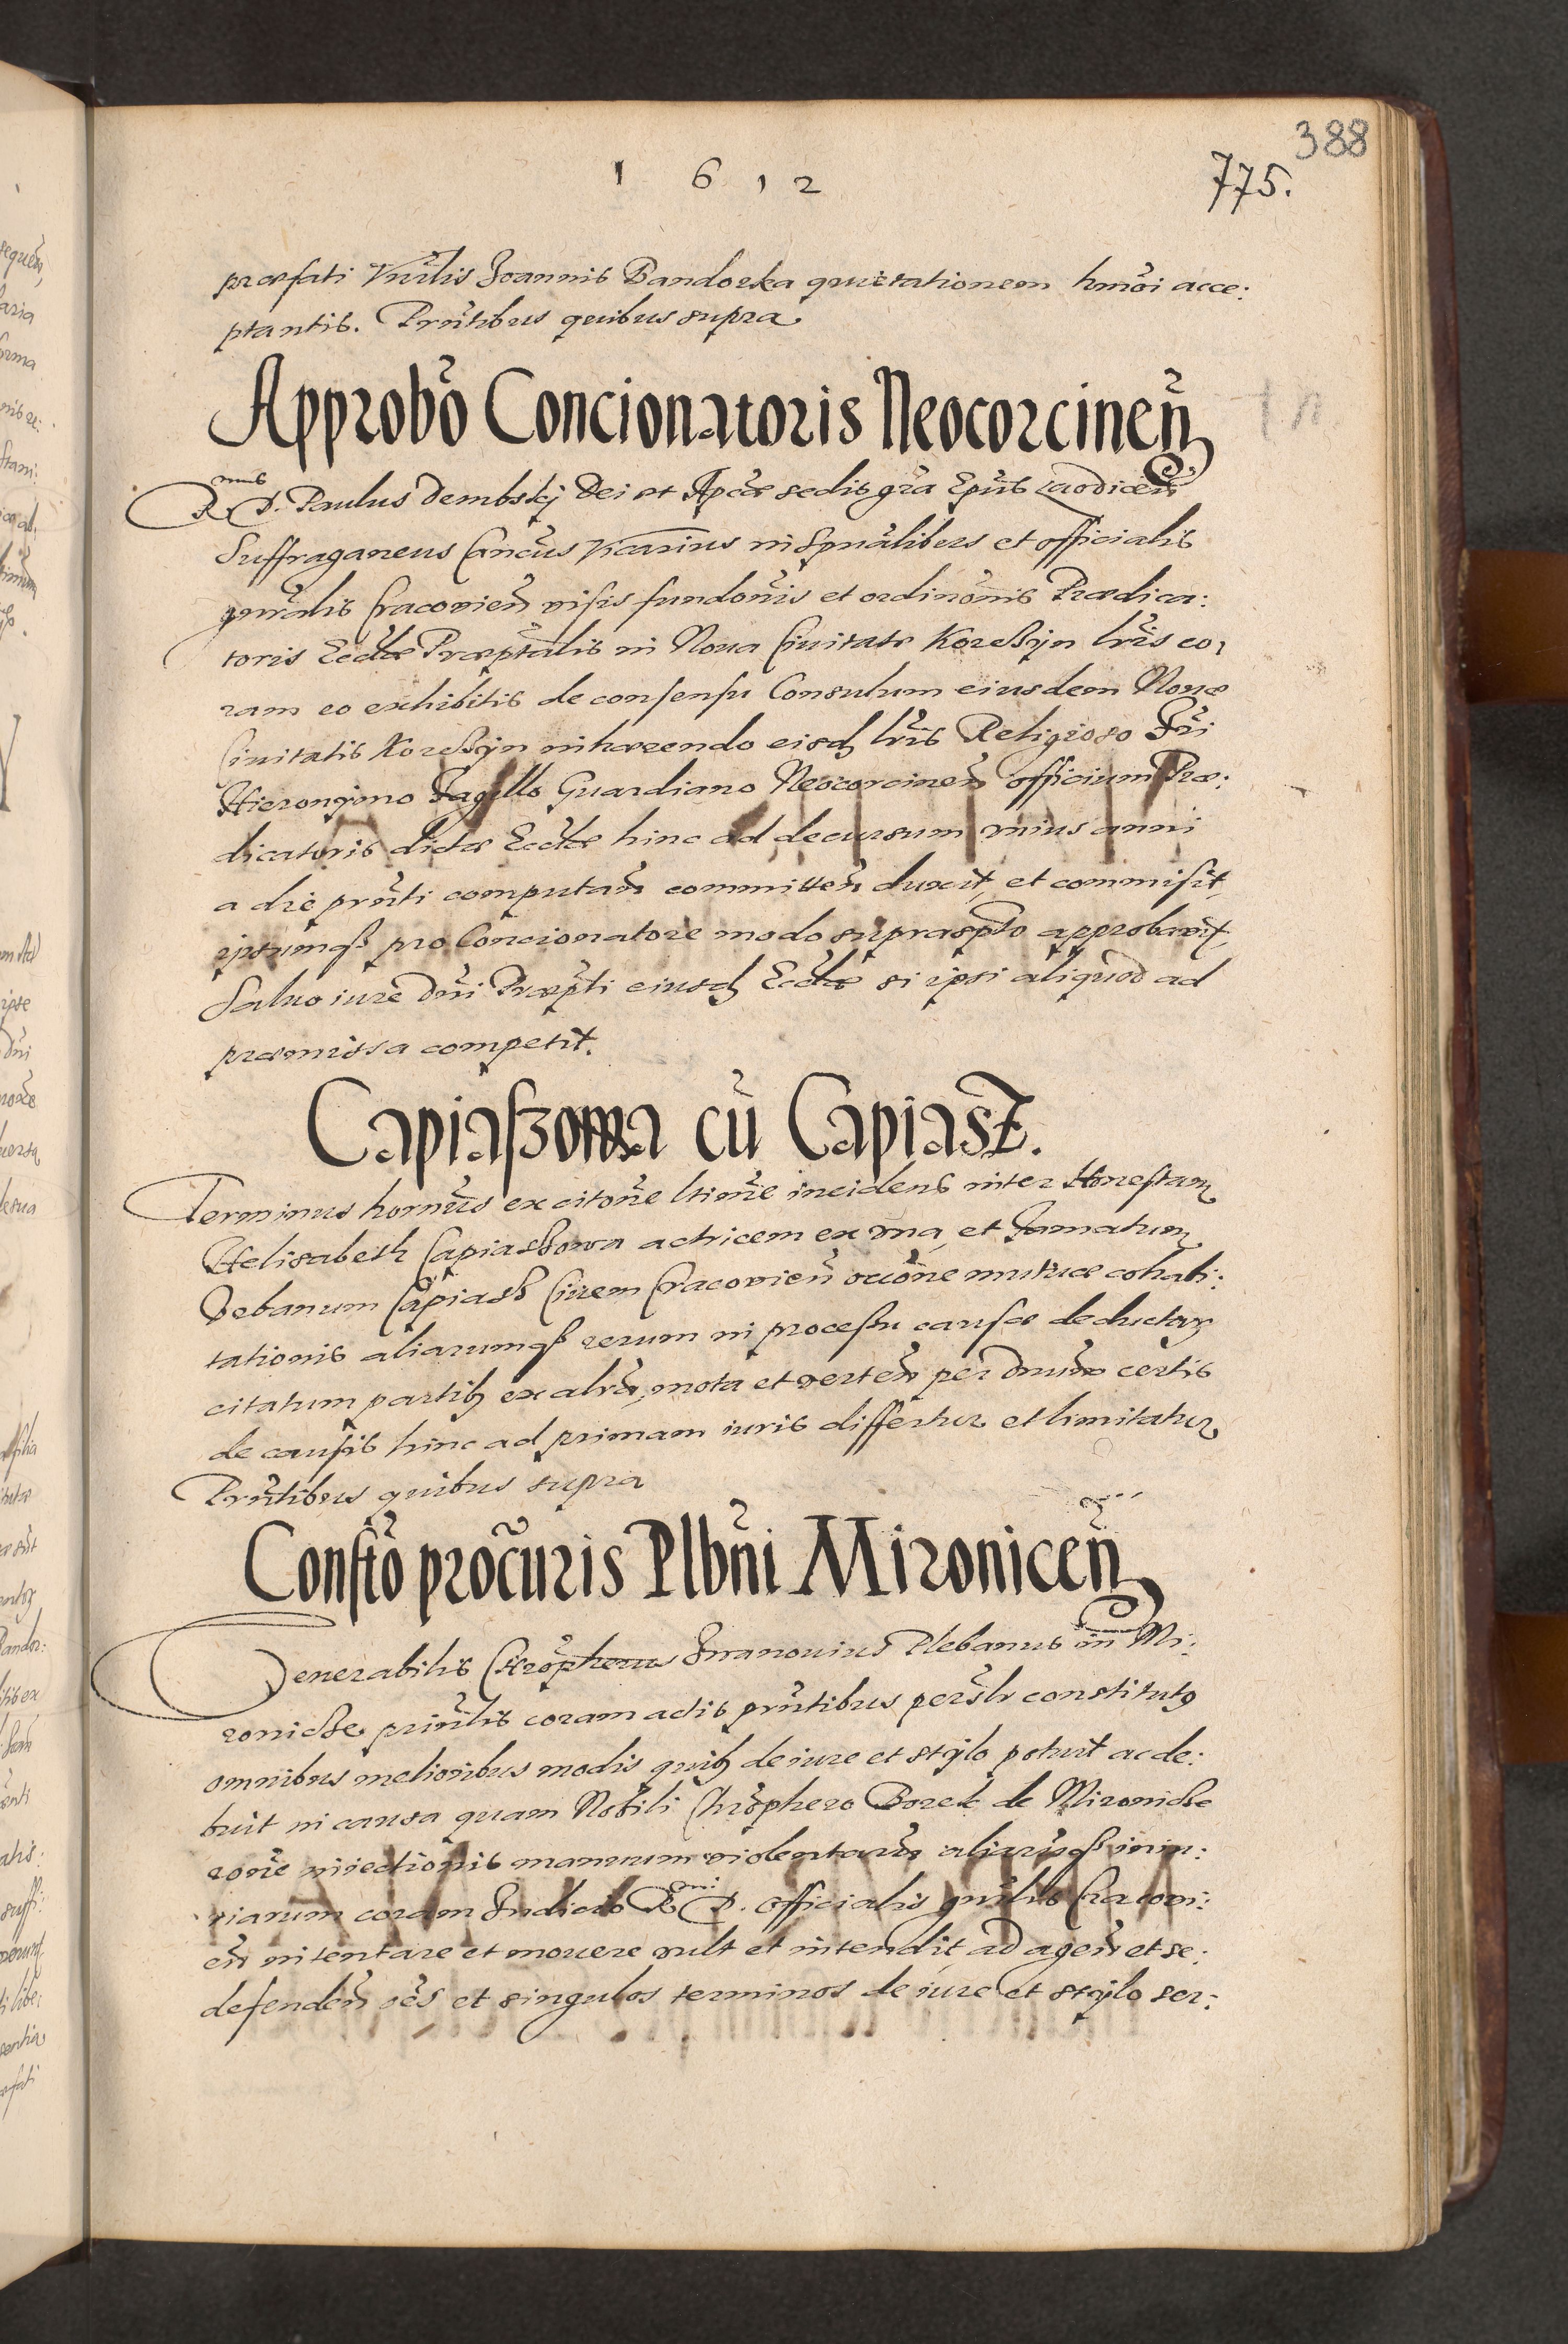 388
1 6 1 2
775.
præfati Vnrĩlis Joannis Bandorka quietationem hmõi acce:
ptantis. Prñtibus quibus supra
Approbõ Concionatoris Neocorcineñ
R.mus D. Paulus Dembskj Dei et Apcæ sedis gr̃a Epũs Laodiceñ
Suffraganeus Cancũs Vicarius in Spũalibus et officialis
gnr̃alis Cracovieñ visis fundoñis et ordinõnis Prædica:
toris Eccl̃æ Præptalis in Noua Ciuitate Korcßijn lr̃is co,
ram eo exhibitis de consensu Consulum eiusdem Nouæ
Ciuitatis Korcßijn inhærendo eisd̃ lr̃is Religioso Fr̃i
Hieronijmo Jagello Guardiano Neocorcineñ officium Præ:
dicatoris dictæ Eccl̃æ hinc ad decursum vnius anni
a die prñti computañ committeñ duxit, et commisit,
ipsumqß pro Concionatore modo suprasp̃to approbavit,
Saluo iure Dñi Præpti eiusd̃ Eccl̃æ si ipsi aliquod ad
præmissa competit.
Capiaßowa cũ Capiasz.
Terminus hornũs ex citoñe ltim̃e incidens inter Honestam
Helisabeth Capiasßowa actricem ex vna, et Famatum
Vrbanum Capiasß Ciuem Cracovieñ occõne mutuæ cohabi:
tationis aliarumqß rerum in processu causæ deductaȝ
citatum partibȝ ex altr̃a, mota et verteñ per Dnum certis
de causis hinc ad primam iuris differtur et limitatur
Prñtibus quibus supra
Constõ procũris Plbñi Mironiceñ
Venerabilis Chrõpherus Iwanouius Plebanus in Mi:
ronicße prinĩlis coram actis prñtibus persĩr constitutȝ
omnibus melioribus modis quibȝ de iure et stijlo potuit ac de:
buit in causa quam Nobili Chrõphero Borek de Mironicße
roñe iniectionis manuum violentarũ aliarũqß iniu:
riarum coram Iudicio R.mi D. officialis gnr̃lis Cracovi:
eñ intentare et mouere vult et intendit, ad ageñ et se:
defendeñ oẽs et singulos terminos de iure et stijlo ser: